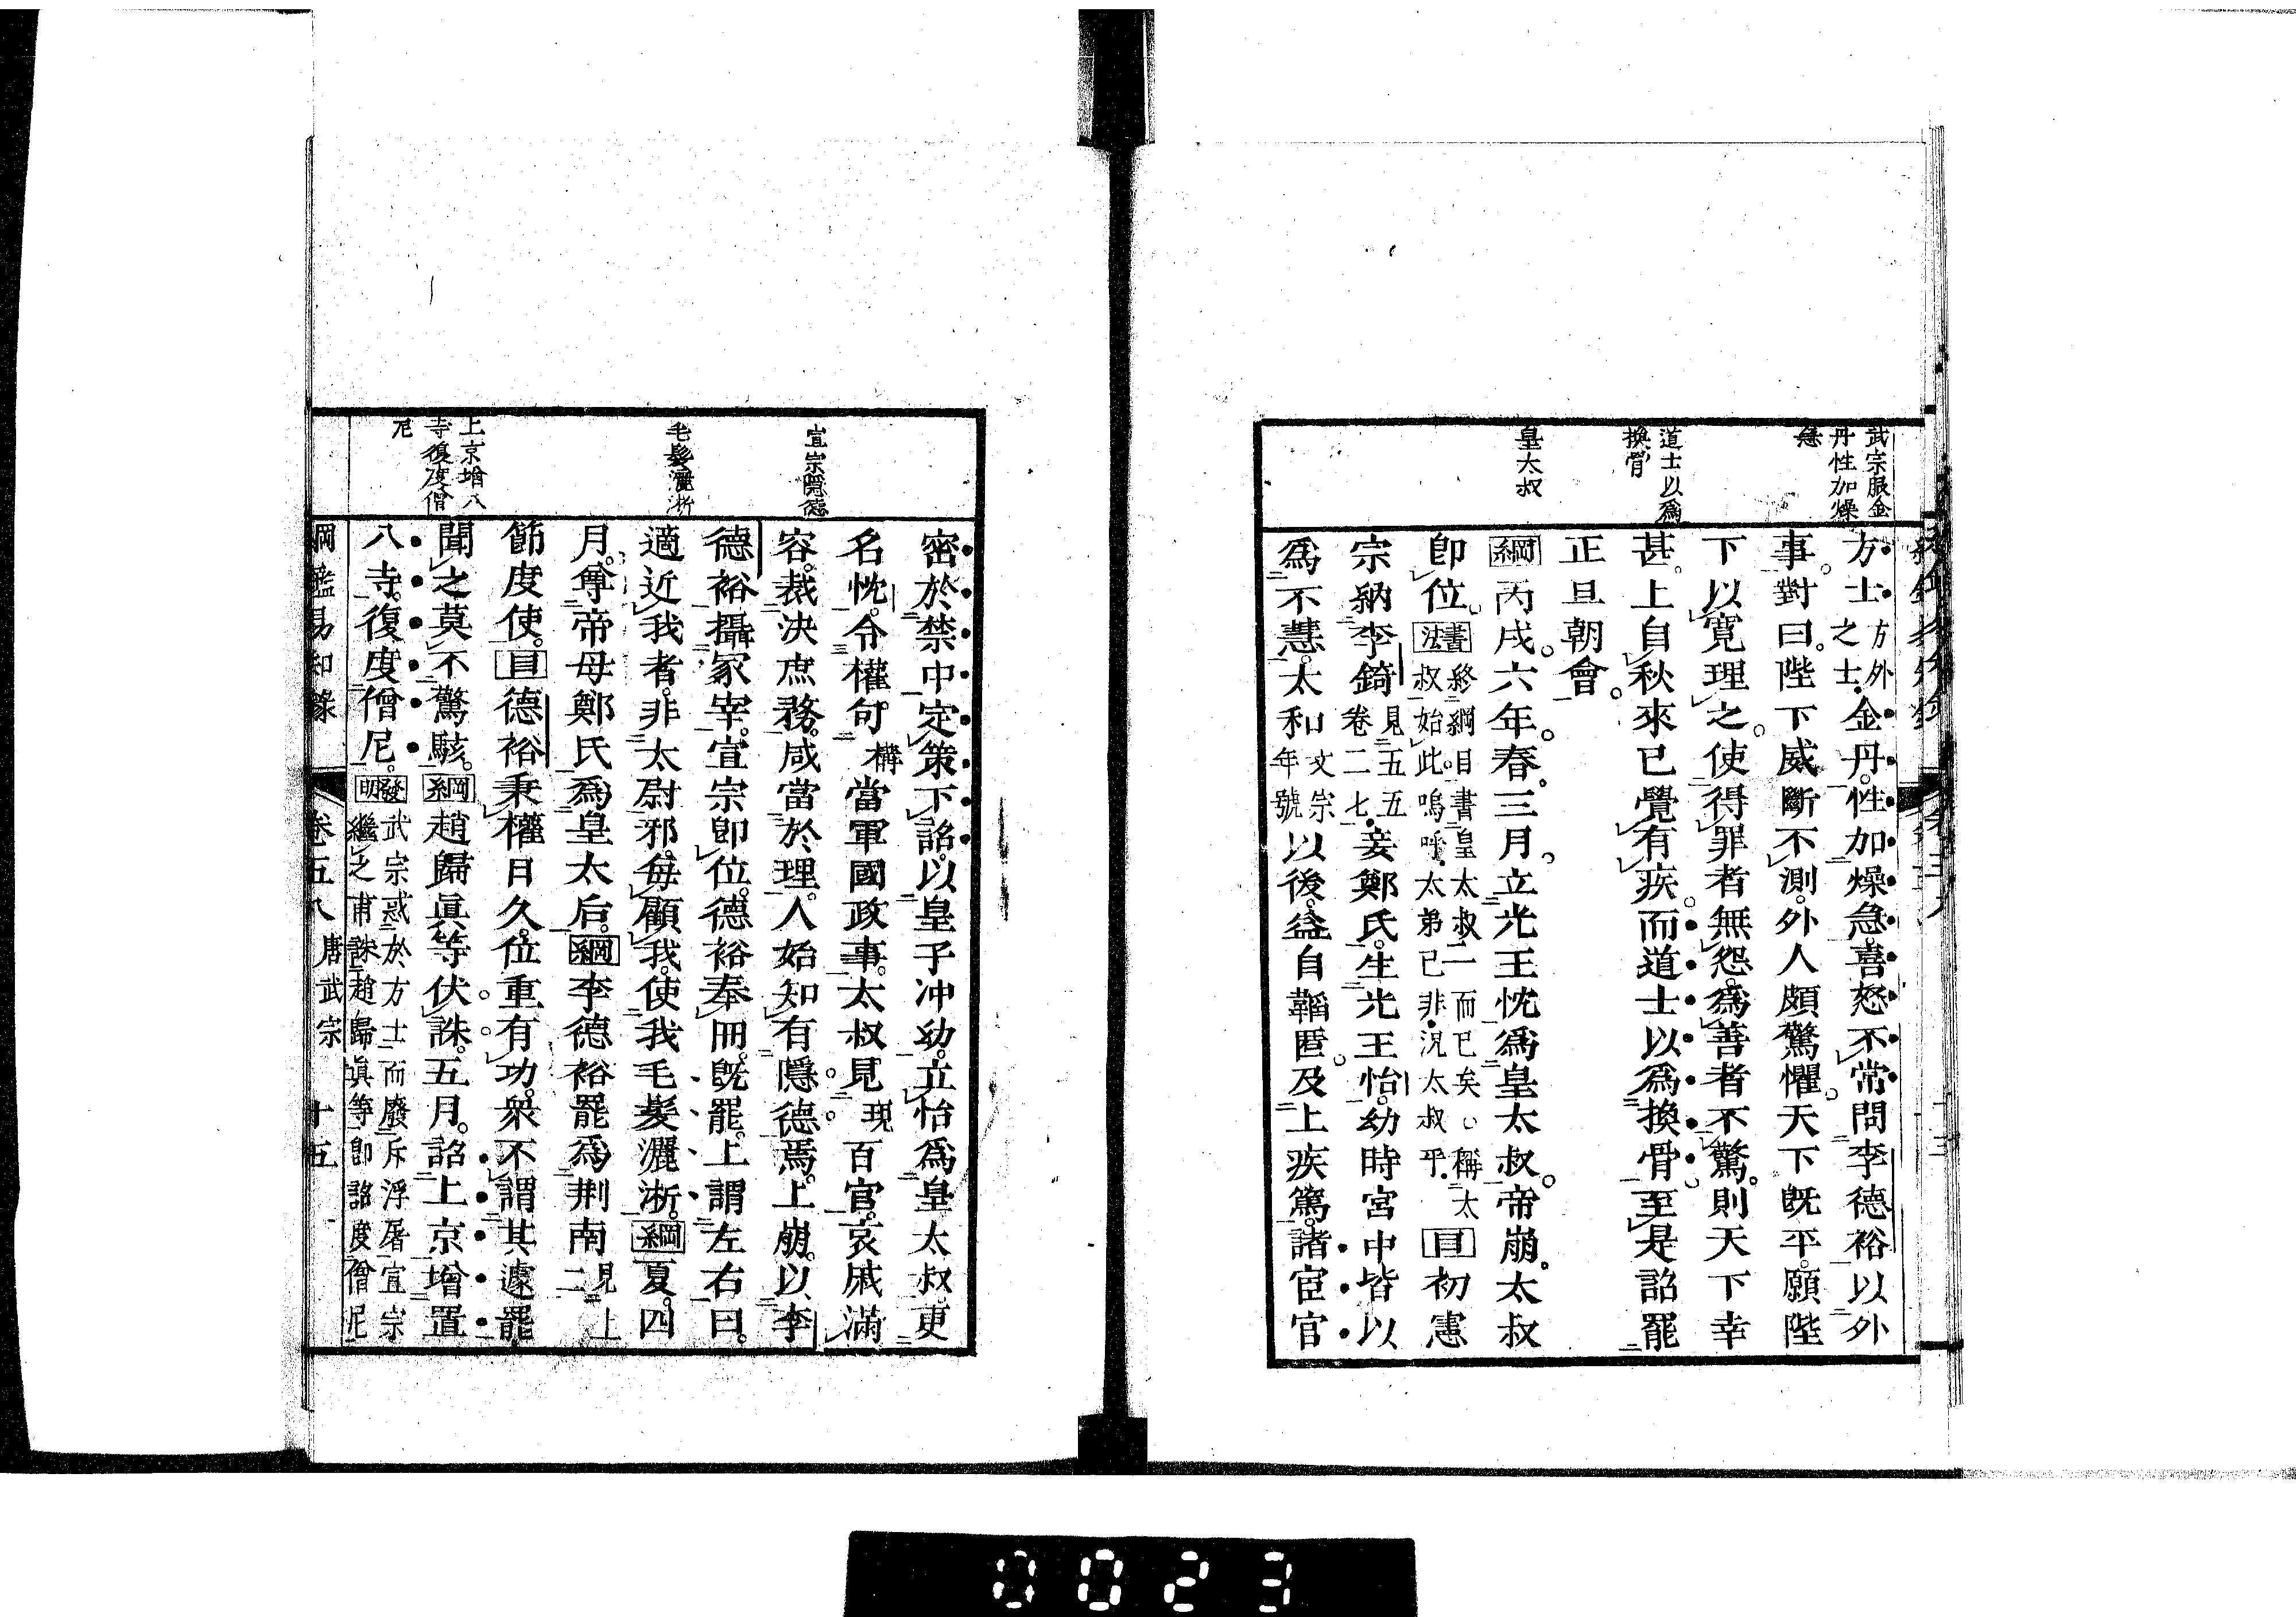 武宗服金
丹性加燥
急
道士以爲
換骨
皇太叔
方士方外之士金丹。性加燥急。喜怒不常。問李德裕以外
事。對曰。陛下威斷不測。外人頗驚懼。天下旣平。願陛
下以寬理之。使得罪者無怨。爲善者不驚。則天下幸
甚。上自秋來已覺有疾。而道士以爲換骨。至是詔罷
正旦朝會。
綱丙戌。六年。春。三月。立光王忱爲皇太叔。帝崩。太叔
卽位。書法終綱目。書皇太叔二而已矣。稱太叔始此。嗚呼。太弟已非。況太叔乎。目初憲
宗納李錡見五五卷二七妾鄭氏。生光王怡。幼時宮中皆以
爲不慧。太和文宗年號以後。益自韜匿。及上疾篤。諸宦官
宣宗隱德
毛髮灑淅
上京增八
寺復度僧
尼
密於禁中定策。下詔。以皇子冲幼。立怡爲皇太叔。更
名忱。令權句構當軍國政事。太叔見現百官。哀戚滿
容。裁決庶務。咸當於理。人始知有隱德焉。上崩。以李
德裕攝冢宰。宣宗卽位。德裕奉冊。旣罷。上謂左右曰。
適近我者。非太尉邪。每顧我。使我毛髮灑淅。綱夏。四
月。尊帝母鄭氏爲皇太后。綱李德裕罷爲荆南見上二
節度使。目德裕秉權日久。位重有功。衆不謂其遽罷。
聞之莫不驚駭。綱趙歸眞等伏誅。五月。詔上京增置
八寺。復度僧尼。發明武宗惑於方士。而廢斥浮屠。宣宗繼之。甫誅趙歸眞等。卽詔度僧尼
綱鑑易知錄 卷五八 唐武宗 十五
0023